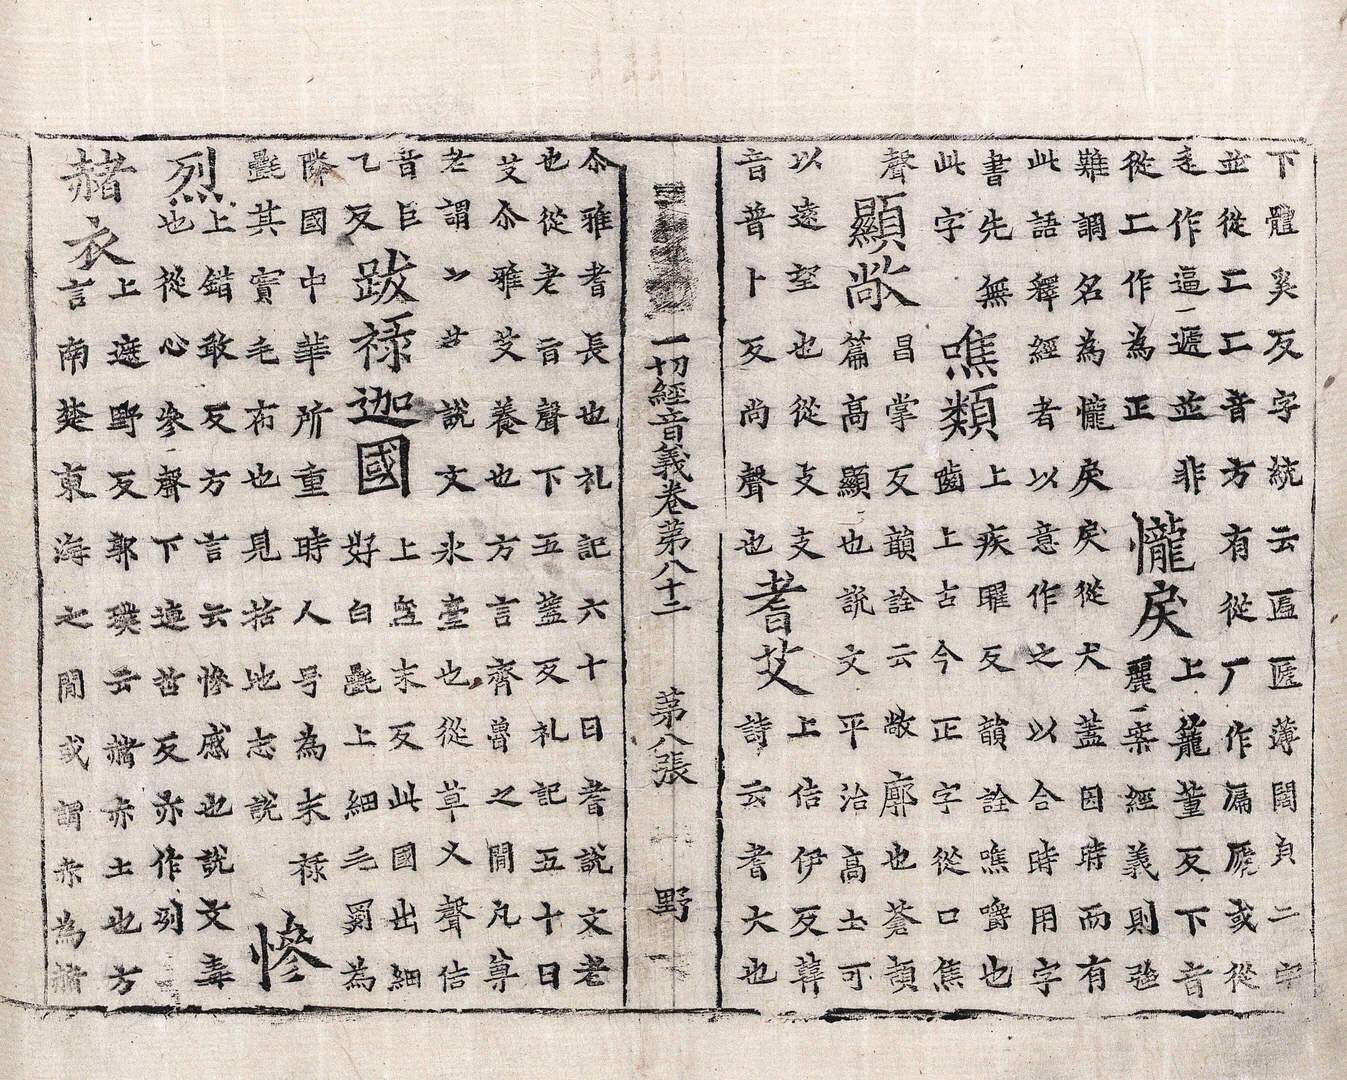 下體奚反字統云匾匾薄闊皃二字
並從匸匸音方有從厂作㢐㢋或從
辵作逼遞並非
從工作為正
儱戾
上籠董反下音
麗案經義則強
難調名為儱戾戾從犬蓋因時而有
此語釋經者以意作之以合時用字
書先無
此字
噍類
上疾曜反韻詮噍嚼也
齒上古今正字從口焦
聲
顯敞
昌掌反韻詮云敞廓也蒼頡
篇高顯也說文平治高土可
以遠望也從攴攴
音普卜反尚聲也
耆艾
上佶伊反
詩云耆大也
一切經音義卷第八十二 第八張 野
尒雅耆長也礼記六十日耆說文老
也從老旨聲下五蓋反礼記五十日
艾尒雅艾養也方言齊魯之間凡尊
老謂之艾說文氷臺也從草乂聲佶
音巨
乙反
跋祿迦國
上盤末反此國出細
好白㲲上細毛罽為
隣國中華所重時人号為末祿
㲲其實毛布也見括地志說
慘
烈
上錯敢反方言云慘慼也說文毒
也從心參聲下連哲反亦作列
赭衣
上遮野反郭璞云赭亦土也方
言南楚東海之間或謂卒為赭